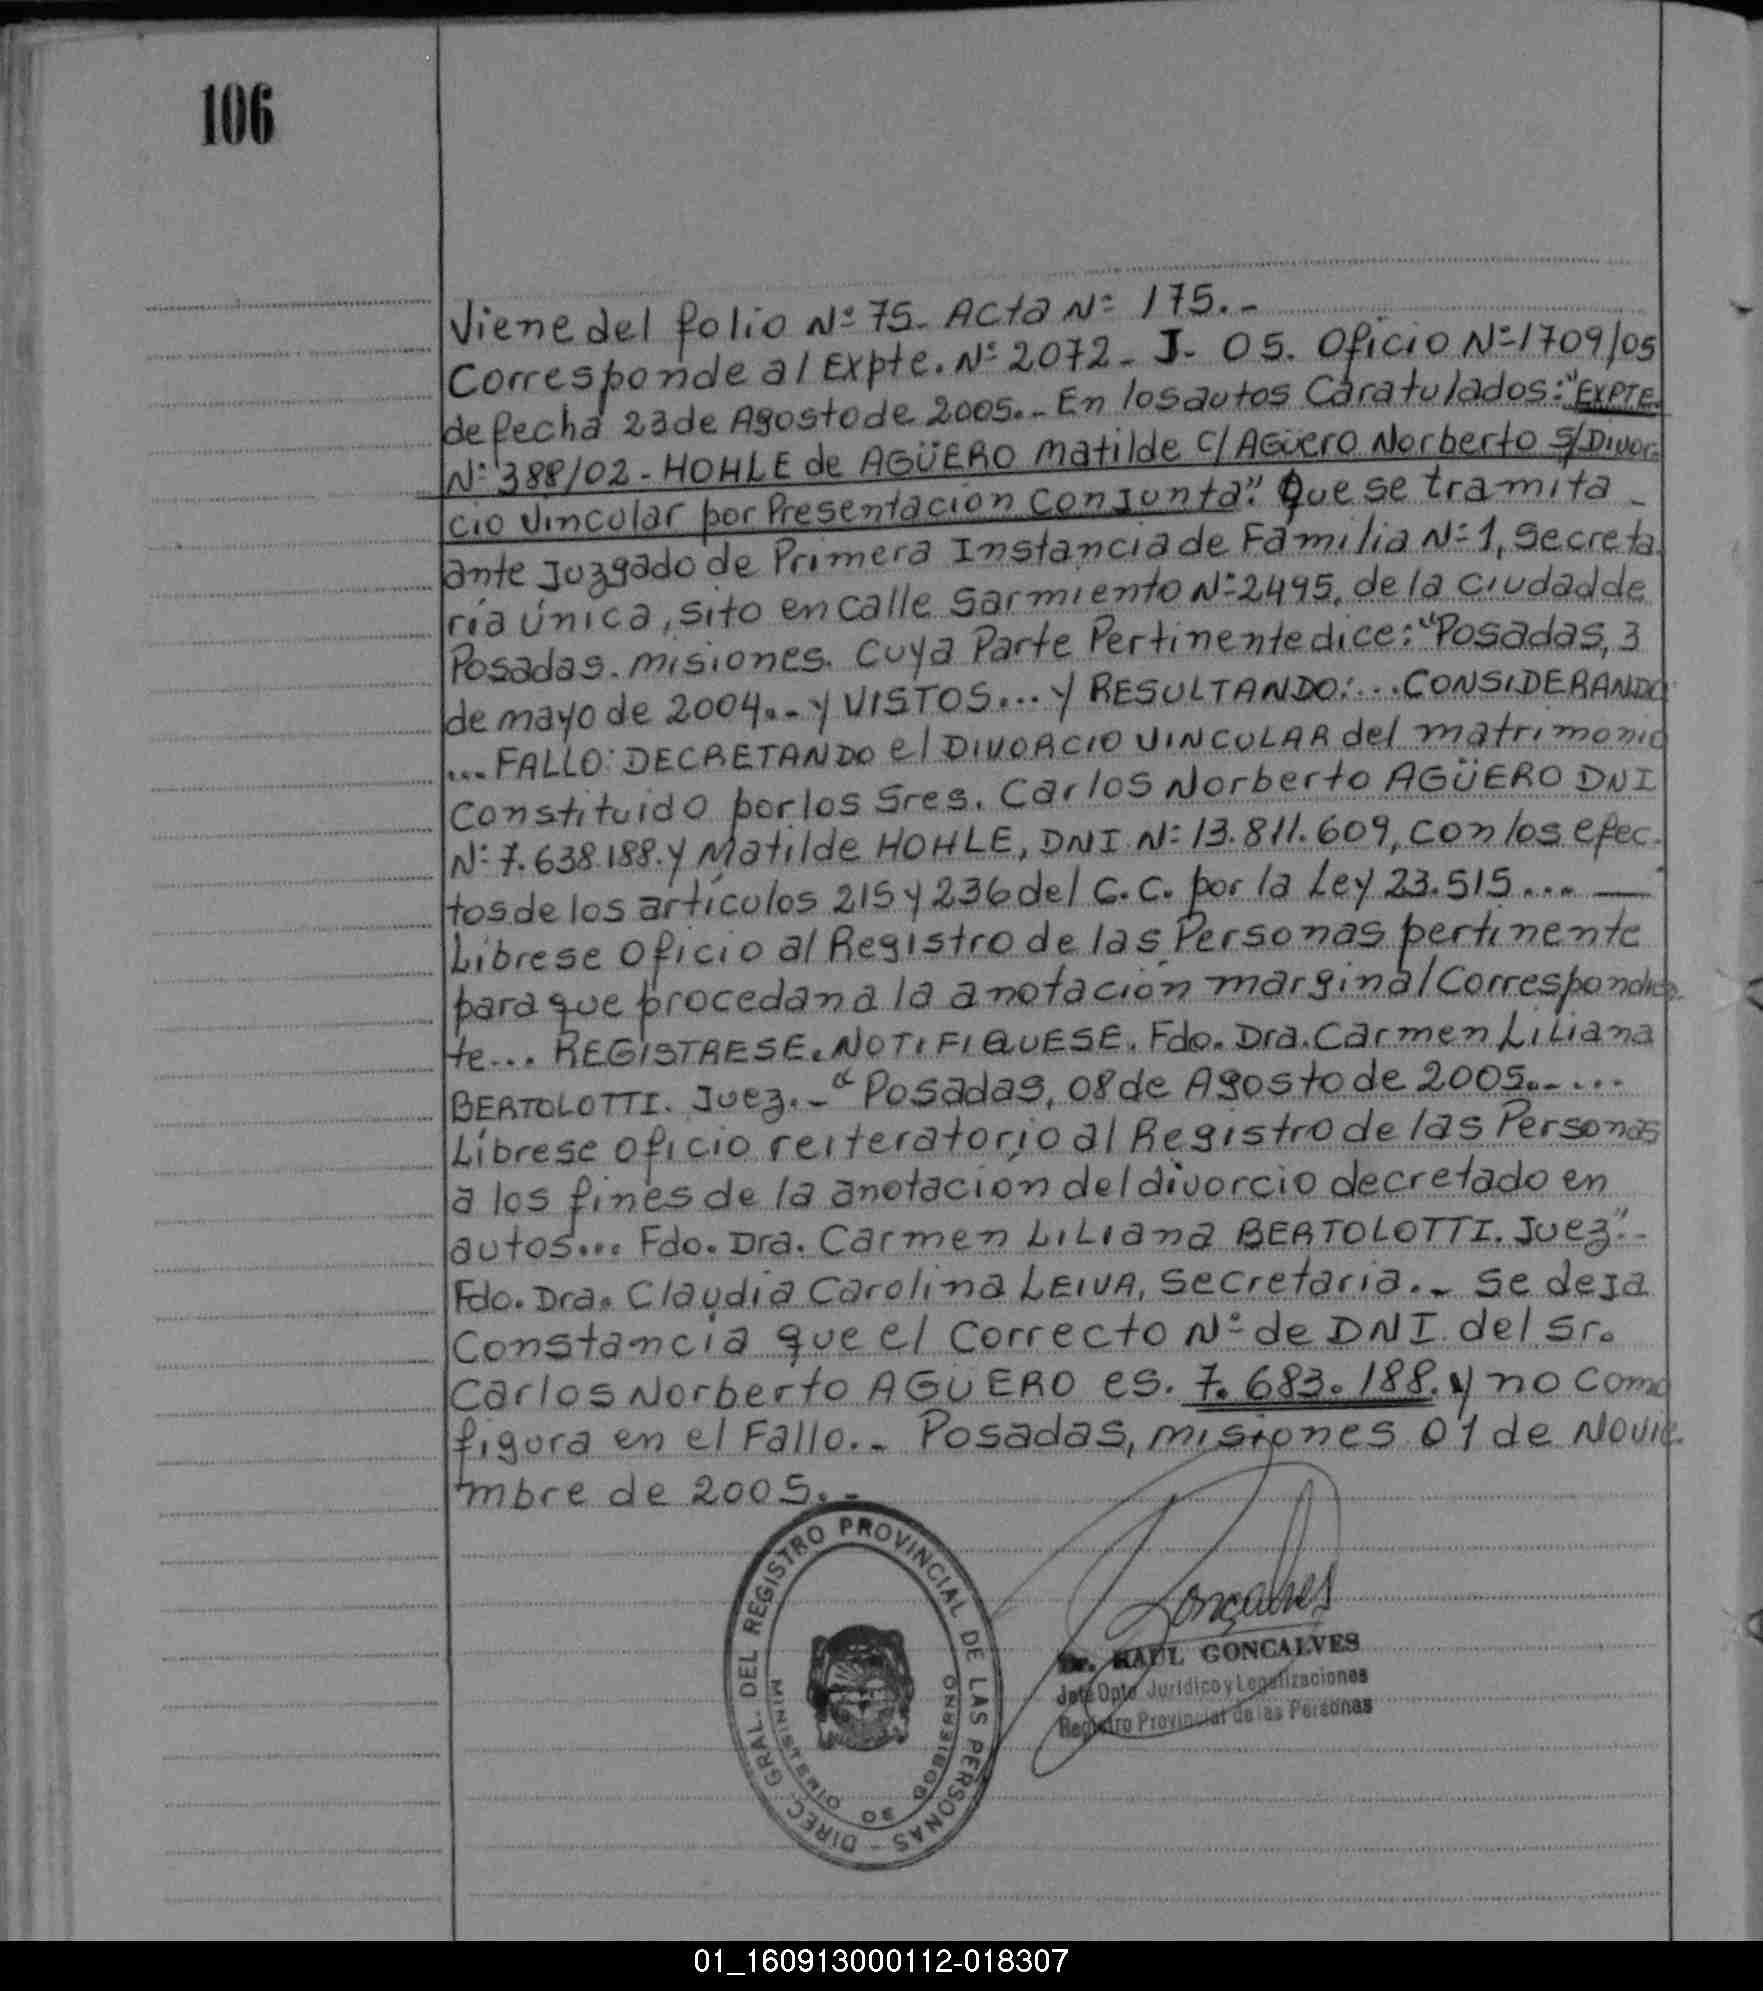 106
Viene del folio Nº 75. Acta Nº 175.-
Corresponde al Expte. Nº 2072 - J - 05. Oficio Nº 1709/05
de fecha 23 de Agosto de 2005.- En los autos Caratulados: "EXPTE.
Nº 388/02 - HOHLE de AGÜERO Matilde c/ AGüero Norberto S/Divor-
cio Vincular por Presentación Conjunta". Que se tramita
ante Juzgado de Primera Instancia de Familia Nº 1, Secreta
ría única, sito en calle Sarmiento Nº 2495, de la ciudad de
Posadas. Misiones. Cuya Parte Pertinente dice: "Posadas, 3
de mayo de 2004.- y VISTOS... y RESULTANDO:... CONSIDERANDO
... FALLO: DECRETANDO el DIVORCIO VINCULAR del matrimonio
Constituido por los Sres. Carlos Norberto AGÜERO DNI
Nº 7.638.188. y Matilde HOHLE, DNI. Nº 13.811.609, con los efec-
tos de los artículos 215 y 236 del C.C. por la Ley 23.515.... —
Líbrese Oficio al Registro de las Personas pertinente
para que procedan a la anotación marginal Correspondien
te... REGISTRESE. NOTIFIQUESE. Fdo. Dra. Carmen Liliana
BERTOLOTTI. Juez.- "Posadas, 08 de Agosto de 2005.-...
Líbrese oficio reiteratorio al Registro de las Personas
a los fines de la anotación del divorcio decretado en
autos... Fdo. Dra. Carmen Liliana BERTOLOTTI. Juez".-
Fdo. Dra. Claudia Carolina LEIVA, Secretaria.- Se deja
Constancia que el Correcto Nº de DNI. del Sr.
Carlos Norberto AGUERO es. 7.683.188. y no como
figura en el Fallo.- Posadas, Misiones 01 de Novie
mbre de 2005.-
DIREC. GRAL. DEL REGISTRO PROVINCIAL DE LAS PERSONAS -
MINISTERIO DE GOBIERNO
Gonçalves
Dr. RAUL GONCALVES
Jefe Dpto Jurídico y Legalizaciones
Registro Provincial de las Personas
01_160913000112-018307